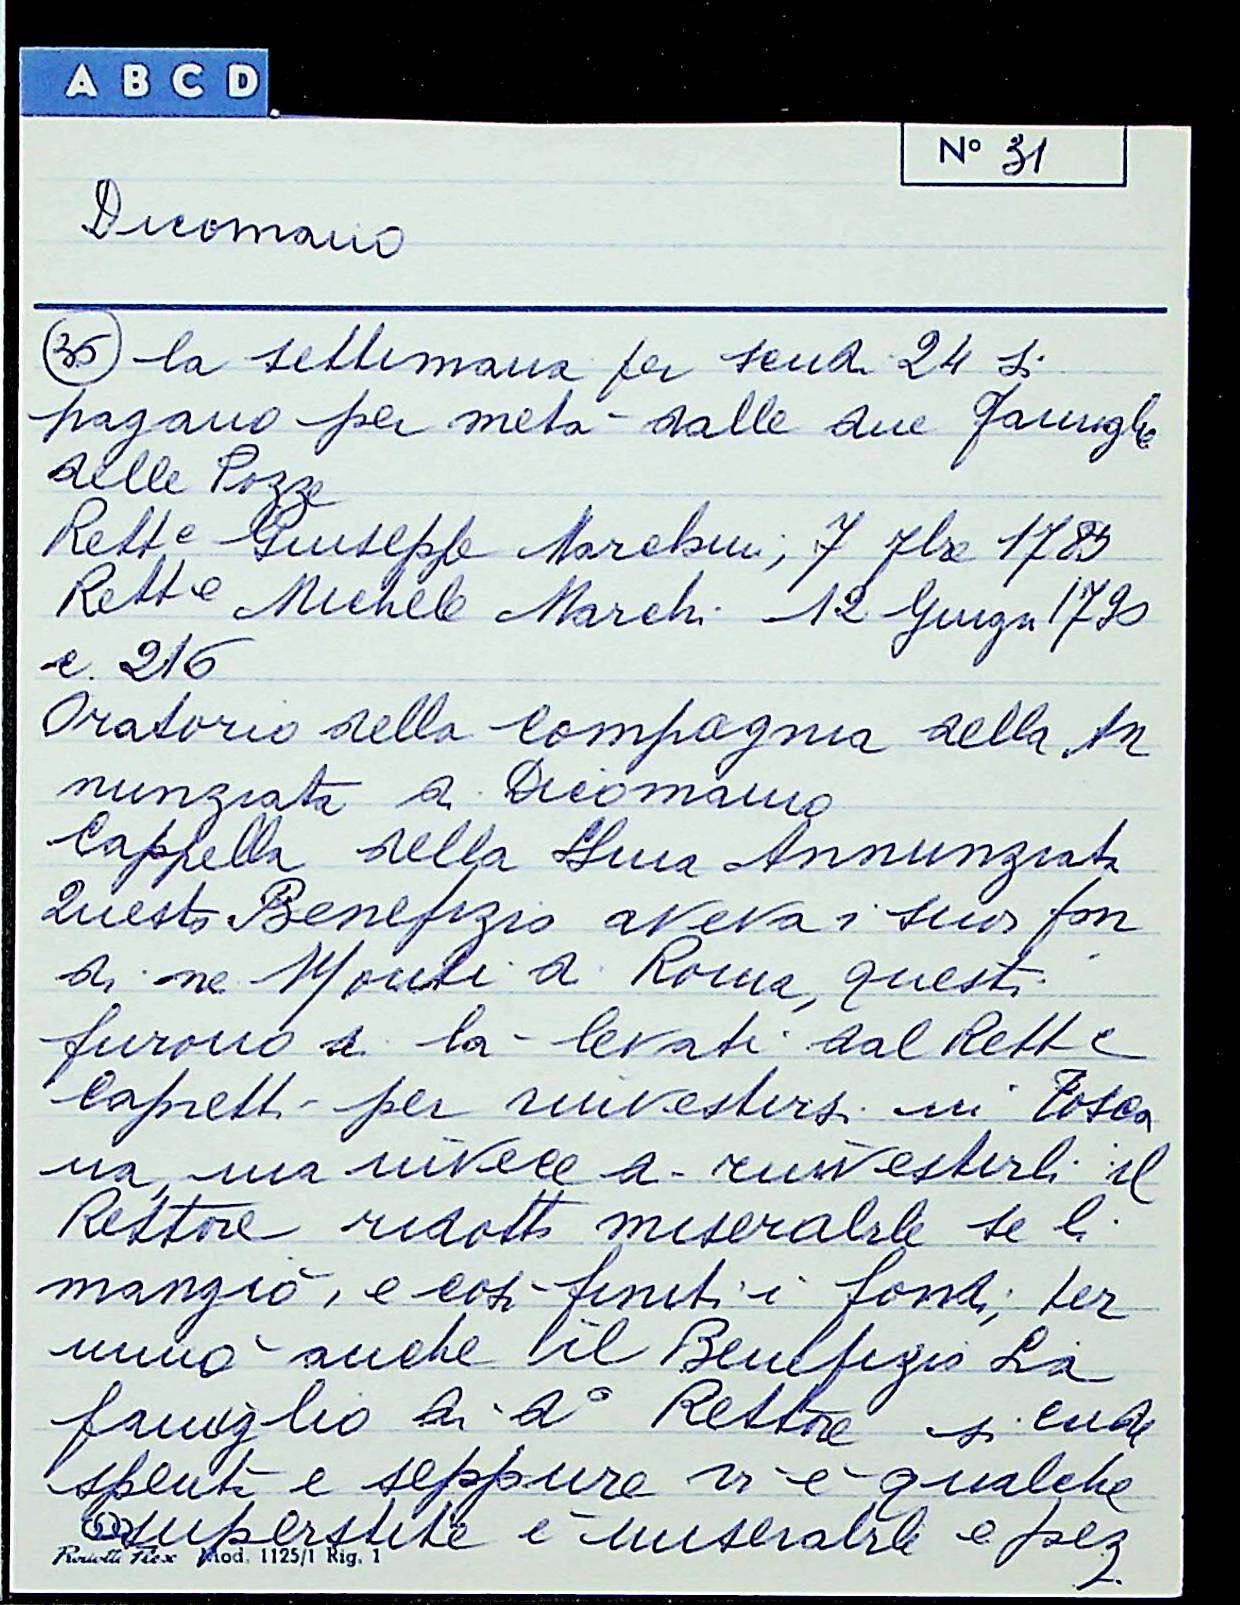 A B C D
N° 31
Dicomano
(35) la settimana per scudi 24 si
pagano per metà dalle due Famiglie
delle Pozze
Rett.e Giuseppe Marchini, 7 7bre 1783
Rett.e Michele Marchi 12 Giugn 1790
c. 216
Oratorio della Compagnia della An
nunziata di Dicomano
Cappella della SSma Annunziata
Questo Benefizio aveva i suoi fon
di ne Monti di Roma, questi
furono di là levati dal Rett.e
Capretti per rinvestirsi in Tosca
na, ma invece di rinvestirli il
Rettore ridotto miserabile se li
mangiò, e così finiti i fondi, ter
minò anche il Benefizio La
famiglia di d° Rettore si crede
spenta e seppure vi è qualche
superstite è miserabile e pez
Mod. 1125/1 Rig. 1